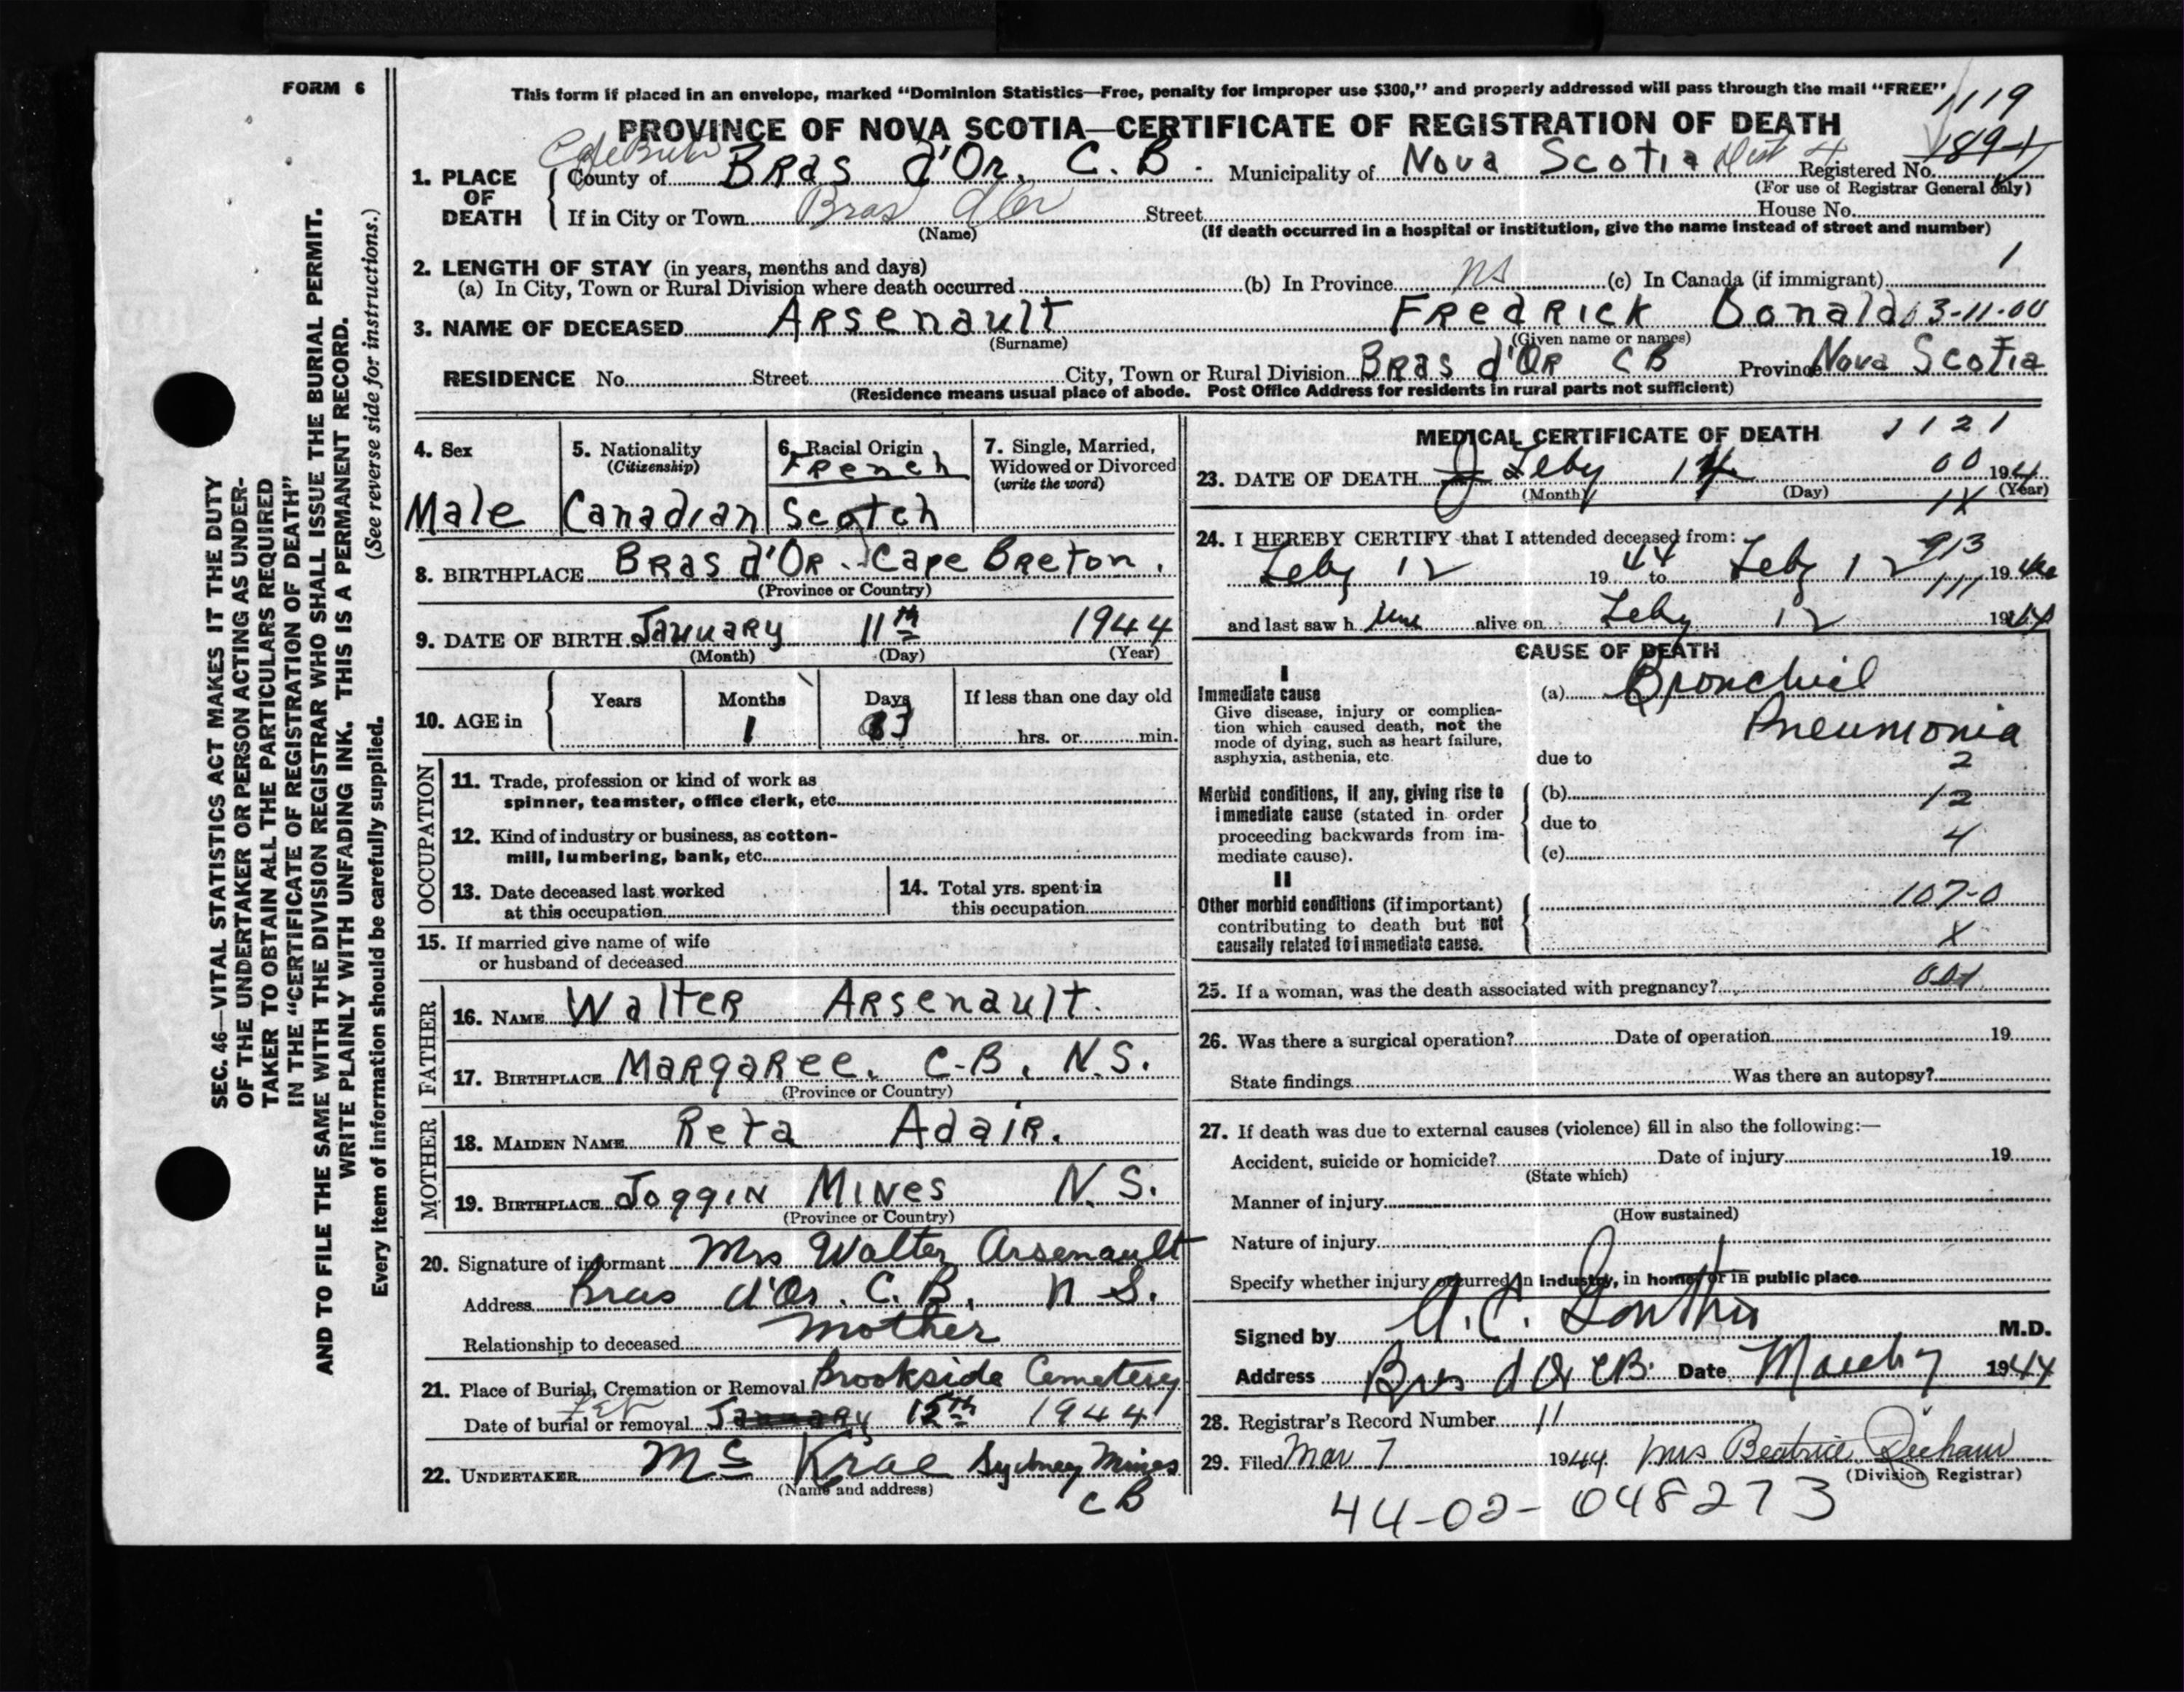 FORM 6
This form if placed in an envelope, marked “Dominion Statistics—Free, penalty for improper use $300,” and properly addressed will pass through the mail “FREE”
1119
PROVINCE OF NOVA SCOTIA—CERTIFICATE OF REGISTRATION OF DEATH
1. PLACE OF DEATH
County of Bras d'Or, C. B. Municipality of Nova Scotia Dist 4 Registered No.
(For use of Registrar General only)
If in City or Town Bras d'Or Street House No.
(Name) (If death occurred in a hospital or institution, give the name instead of street and number)
2. LENGTH OF STAY (in years, months and days) 1
(a) In City, Town or Rural Division where death occurred (b) In Province NS (c) In Canada (if immigrant)
3. NAME OF DECEASED Arsenault Fredrick Donald 13-11-00
(Surname) (Given name or names)
RESIDENCE No. Street City, Town or Rural Division Bras d'Or C B Province Nova Scotia
(Residence means usual place of abode. Post Office Address for residents in rural parts not sufficient)
4. Sex
Male
5. Nationality
(Citizenship)
Canadian
6. Racial Origin
French
Scotch
7. Single, Married,
Widowed or Divorced
(write the word)
8. BIRTHPLACE Bras d'Or. Cape Breton.
(Province or Country)
9. DATE OF BIRTH January 11th 1944
(Month) (Day) (Year)
10. AGE in
Years Months Days If less than one day old
1 3 hrs. or min.
OCCUPATION
11. Trade, profession or kind of work as
spinner, teamster, office clerk, etc.
12. Kind of industry or business, as cotton-
mill, lumbering, bank, etc.
13. Date deceased last worked
at this occupation
14. Total yrs. spent in
this occupation
15. If married give name of wife
or husband of deceased
FATHER
16. NAME Walter Arsenault.
17. BIRTHPLACE Margaree. C-B. N.S.
(Province or Country)
MOTHER
18. MAIDEN NAME Reta Adair.
19. BIRTHPLACE Joggin Mines N.S.
(Province or Country)
20. Signature of informant Mrs Walter Arsenault
Address Bras d'Or. C.B. N S.
Relationship to deceased Mother
21. Place of Burial, Cremation or Removal Brookside Cemetery
Feb
Date of burial or removal January 15th 1944
22. UNDERTAKER Mc Krae Sydney Mines
(Name and address) C B
MEDICAL CERTIFICATE OF DEATH 1121
23. DATE OF DEATH Feby 14 00 1944
(Month) (Day) (Year)
1X
24. I HEREBY CERTIFY that I attended deceased from:
913
Feby 12 1944 to Feby 12 1944
111
and last saw h im alive on Feby 12 1944
CAUSE OF DEATH
I
Immediate cause
Give disease, injury or complica-
tion which caused death, not the
mode of dying, such as heart failure,
asphyxia, asthenia, etc.
(a) Bronchial
Pneumonia
due to 2
Morbid conditions, if any, giving rise to
immediate cause (stated in order
proceeding backwards from im-
mediate cause).
(b) 12
due to
(c) 4
II
Other morbid conditions (if important)
contributing to death but not
causally related to immediate cause.
107-0
X
25. If a woman, was the death associated with pregnancy?
26. Was there a surgical operation? Date of operation 19
State findings Was there an autopsy?
27. If death was due to external causes (violence) fill in also the following:—
Accident, suicide or homicide? Date of injury 19
(State which)
Manner of injury
(How sustained)
Nature of injury
Specify whether injury occurred in industry, in home, or in public place
Signed by M.D.
Address Bras d'Or CB. Date March 7 1944
28. Registrar's Record Number 11
29. Filed Mar 7 1944 Mrs Beatrice
(Division Registrar)
44-02-048273
SEC. 46—VITAL STATISTICS ACT MAKES IT THE DUTY
OF THE UNDERTAKER OR PERSON ACTING AS UNDER-
TAKER TO OBTAIN ALL THE PARTICULARS REQUIRED
IN THE “CERTIFICATE OF REGISTRATION OF DEATH”
AND TO FILE THE SAME WITH THE DIVISION REGISTRAR WHO SHALL ISSUE THE BURIAL PERMIT.
WRITE PLAINLY WITH UNFADING INK. THIS IS A PERMANENT RECORD.
Every item of information should be carefully supplied. (See reverse side for instructions.)